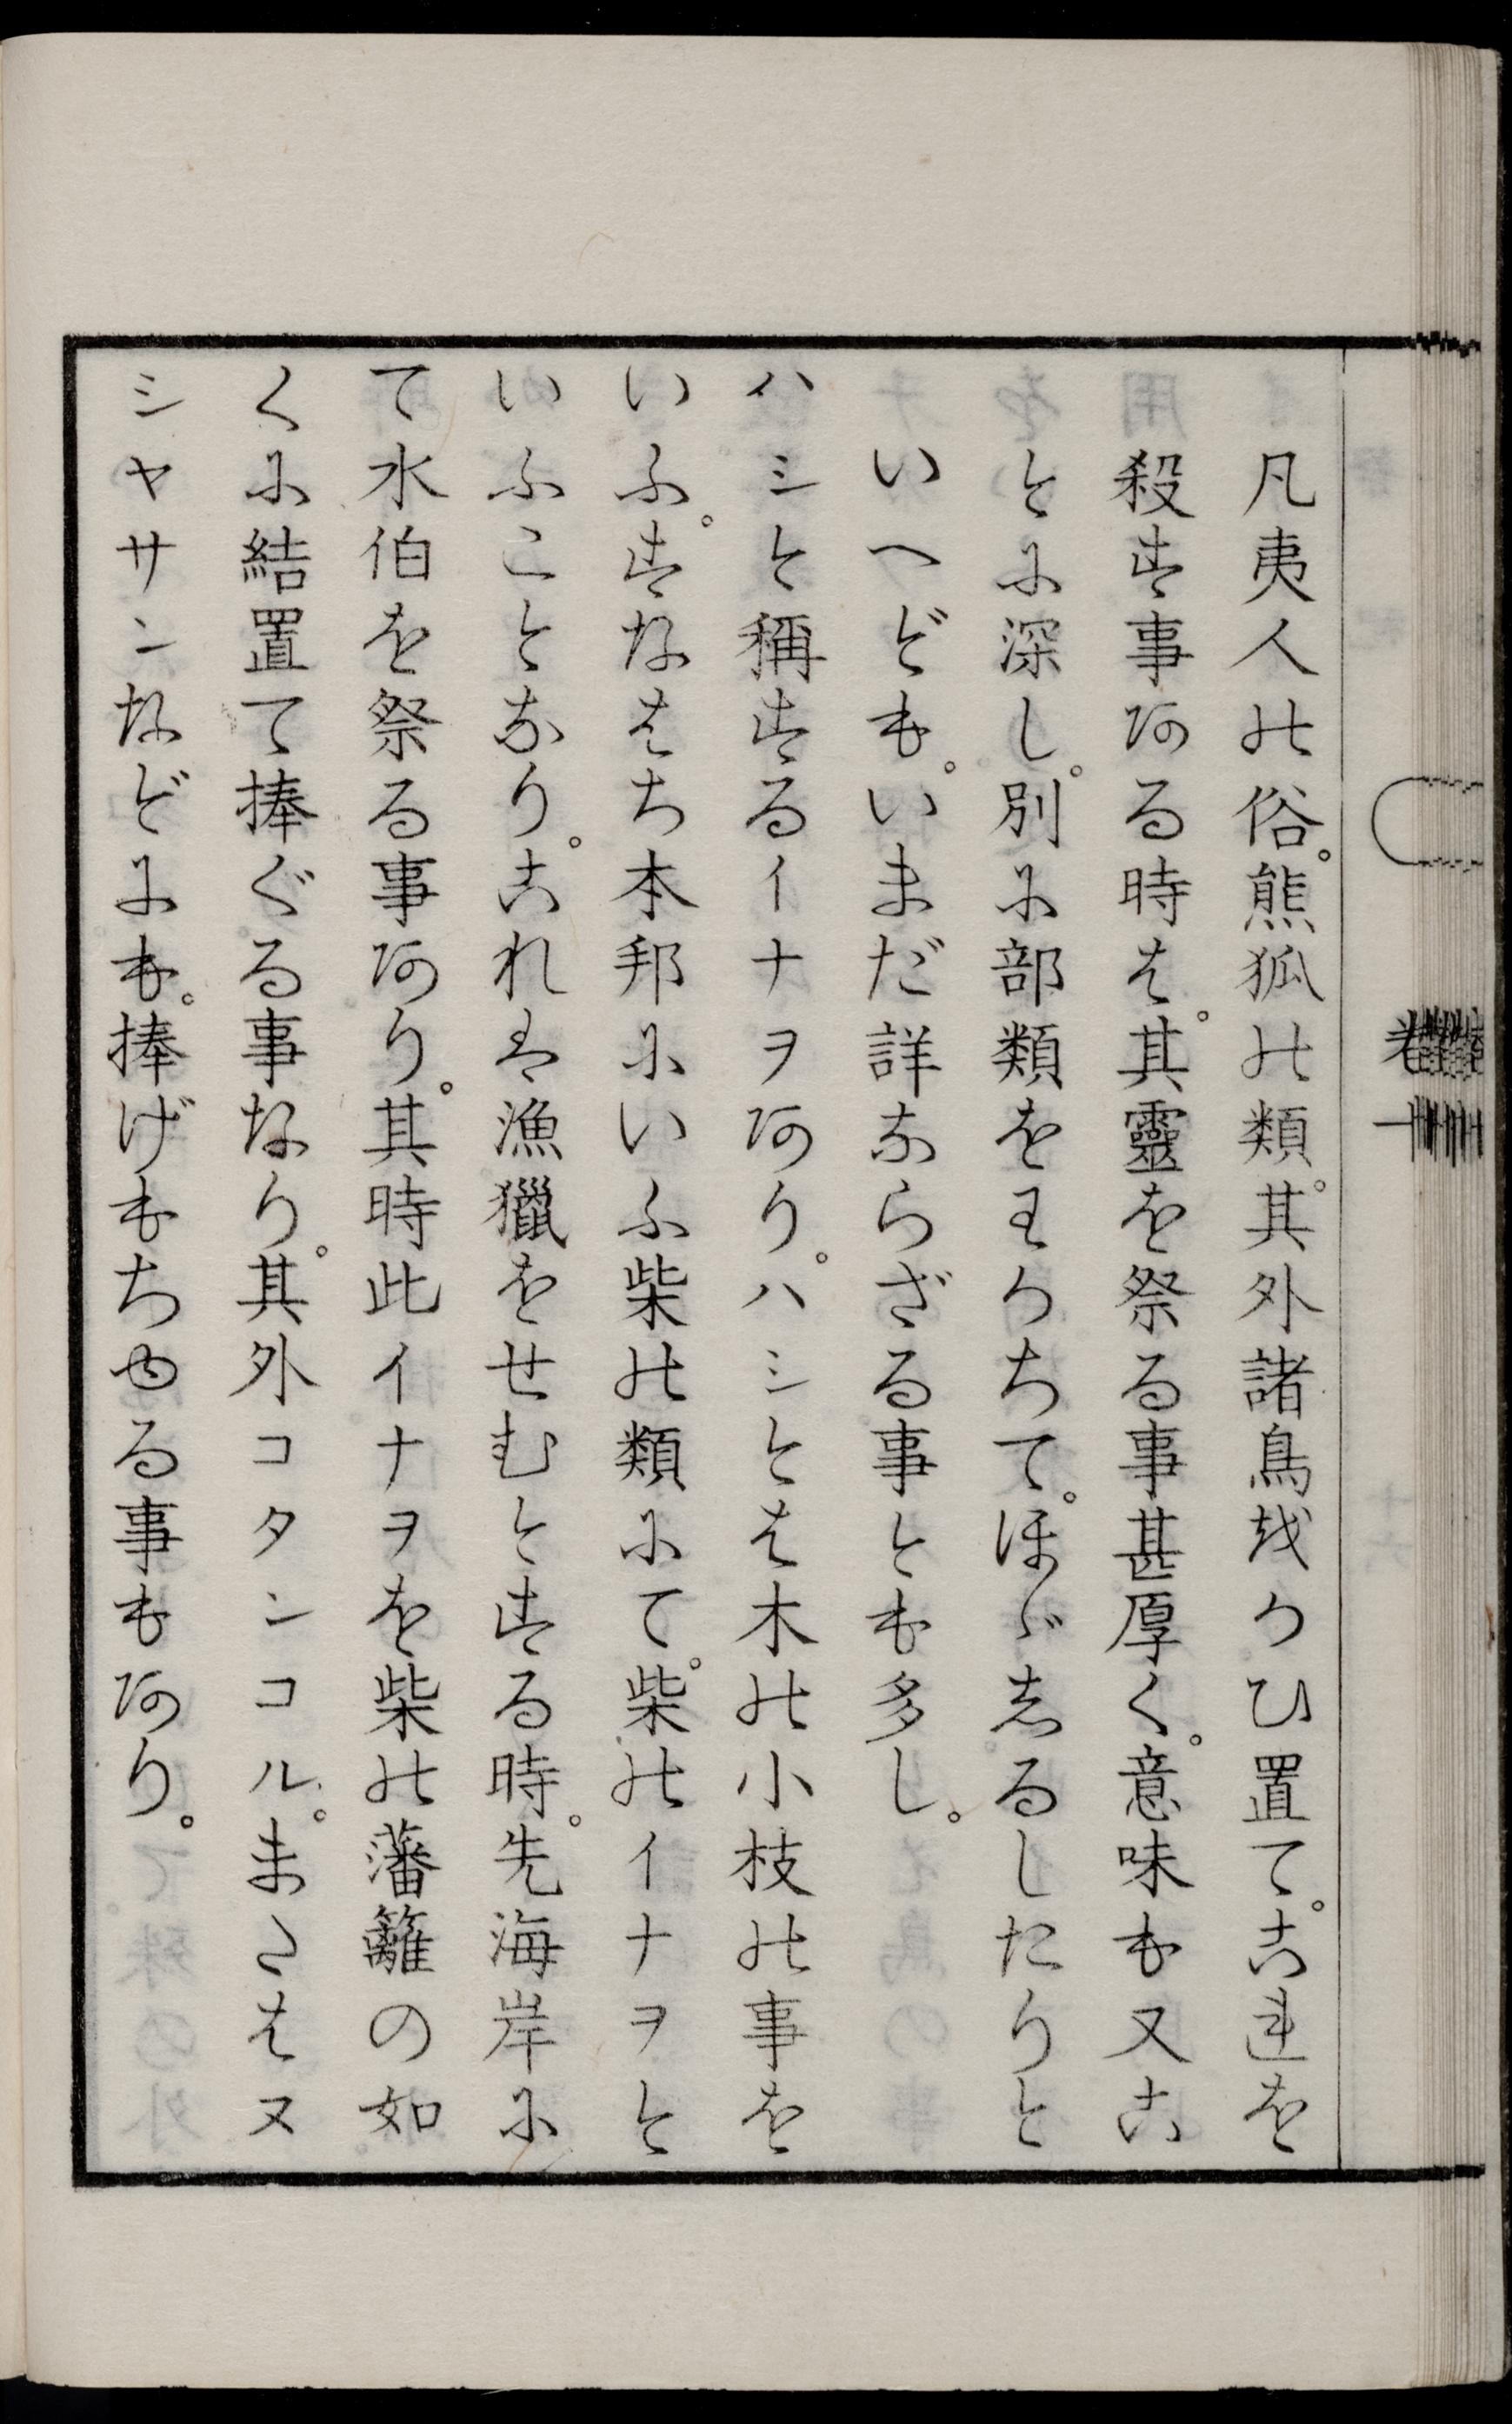 凡夷人の俗。熊狐の類。其外諸鳥をかひ置て。これを
殺す事ある時は。其靈を祭る事甚厚く。意味も又こ
とに深し。別に部類をわかちて。ほゞしるしたりと
いへども。いまだ詳ならざる事とも多し。
ハシと稱するイナヲあり。ハシとは木の小枝の事を
いふ。すなはち本邦にいふ柴の類にて。柴のイナヲと
いふことなり。これは漁獵をせむとする時。先海岸に
て水伯を祭る事あり。其時此イナヲを柴の藩籬の如
くに結置て捧ぐる事なり。其外コタンコル。またはヌ
シヤサンなどにも。捧げもちゆる事もあり。